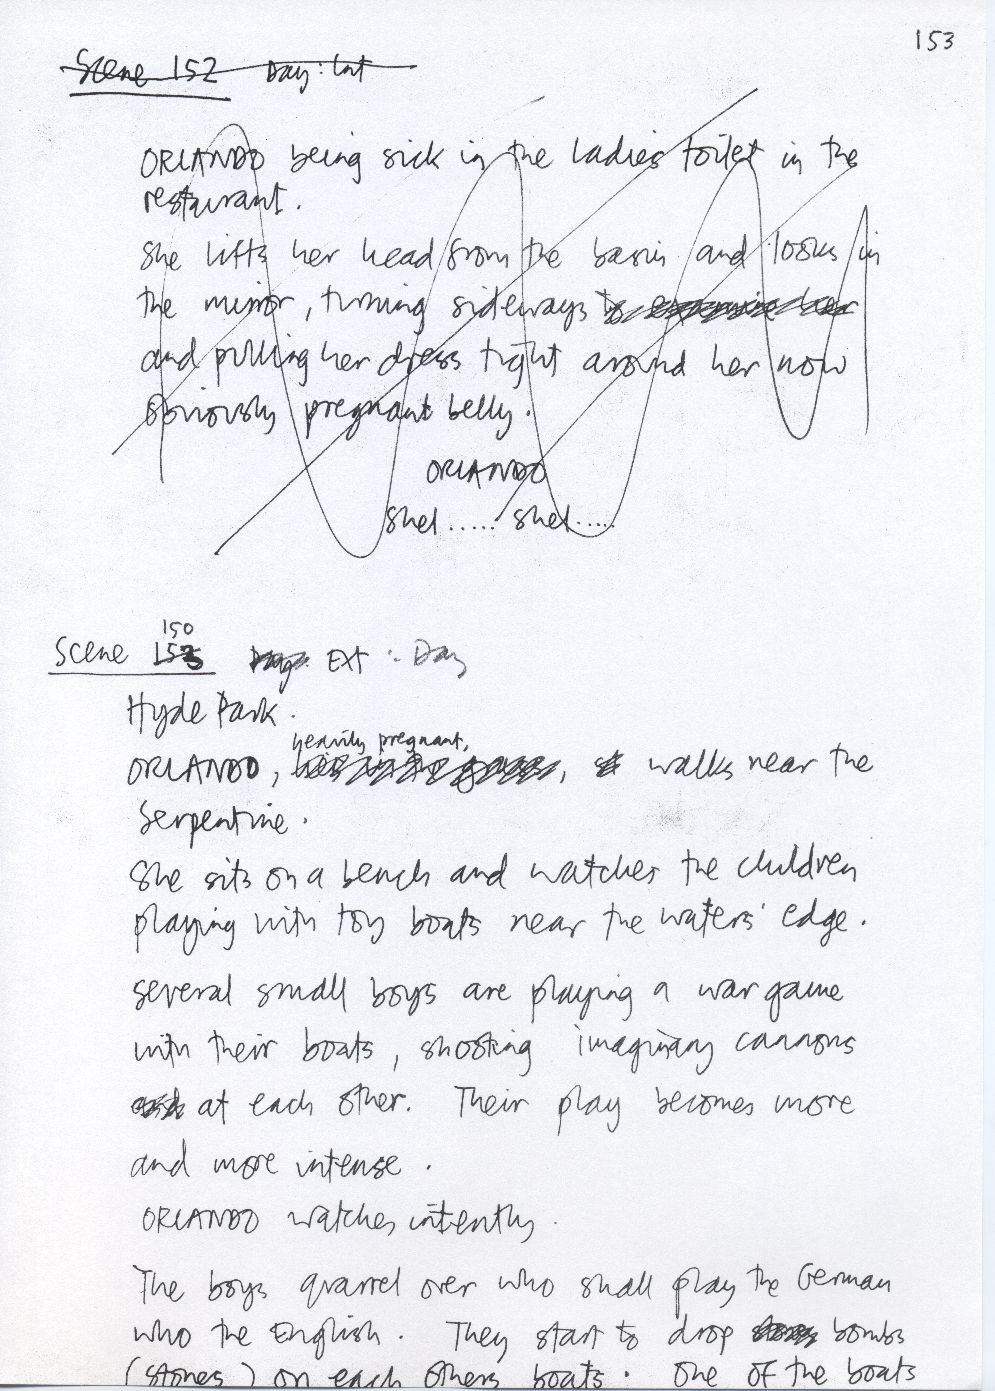 153
Scene 152 Day: Int
ORLANDO being sick in the ladies toilet in the
restaurant.
She lifts her head from the basin and looks in
the mirror, turning sideways to examine her
and pulling her dress tight around her now
obviously pregnant belly.
ORLANDO
Shel ..... Shel .....
150
Scene 153 Day. EXT : Day
Hyde Park.
heavily pregnant,
ORLANDO, , walks near the
Serpentine.
She sits on a bench and watches the children
playing with toy boats near the waters' edge.
Several small boys are playing a war game
with their boats, shooting imaginary cannons
and at each other. Their play becomes more
and more intense.
ORLANDO watches intently.
The boys quarrel over who shall play the German
who the English. They start to drop stones bombs
(stones) on each others boats. One of the boats